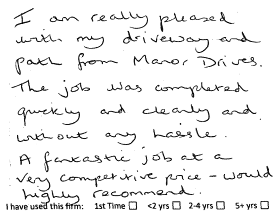 I am really pleased
with my driveway and
path from Manor Drives.
The job was completed
quickly and cleanly and
without any hassle.
A fantastic job at a
very competitive price - would
highly recommend.
I have used this firm: 1st Time □ <2 yrs □ 2-4 yrs □ 5+ yrs □